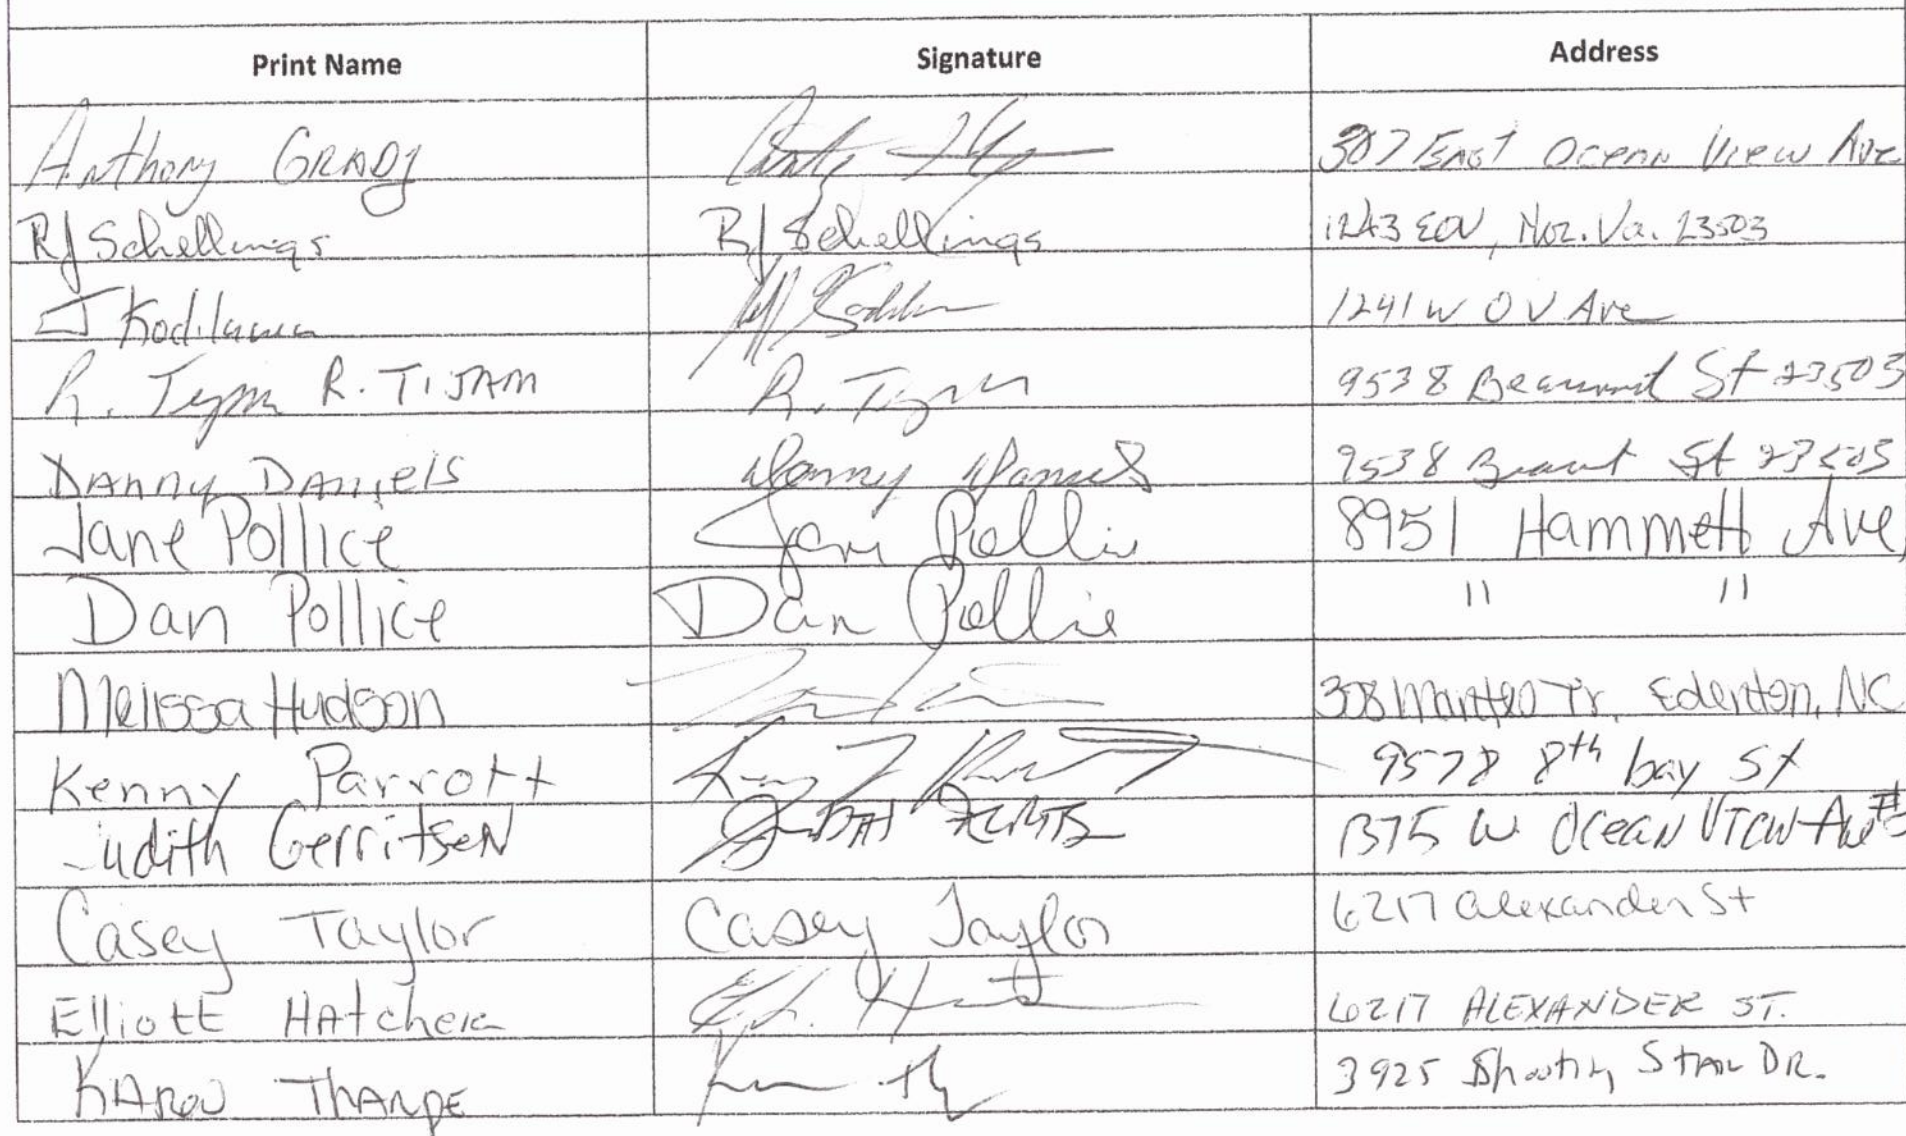 Print Name Signature Address
Anthony GRADY 307 East Ocean View Ave
RJ Schellings RJ Schellings 1243 EOV, Nor. Va. 23503
J 1241 W O V Ave
R. Tijam R. TIJAM R. Tijam 9538 St 23503
DAnny DAniels Danny Daniels 9538 St 23503
Jane Pollice Jane Pollice 8951 Hammett Ave
Dan Pollice Dan Pollice " "
Melissa Hudson 308 Manteo Tr. Edenton, NC
Kenny Parrott 9578 8th bay St
Judith GerritseN 1375 W OceaN View Ave #
Casey Taylor Casey Taylor 6217 alexander St
Elliott HAtcher 6217 ALEXANDER ST.
THARPE 3925 Shooting Star DR.